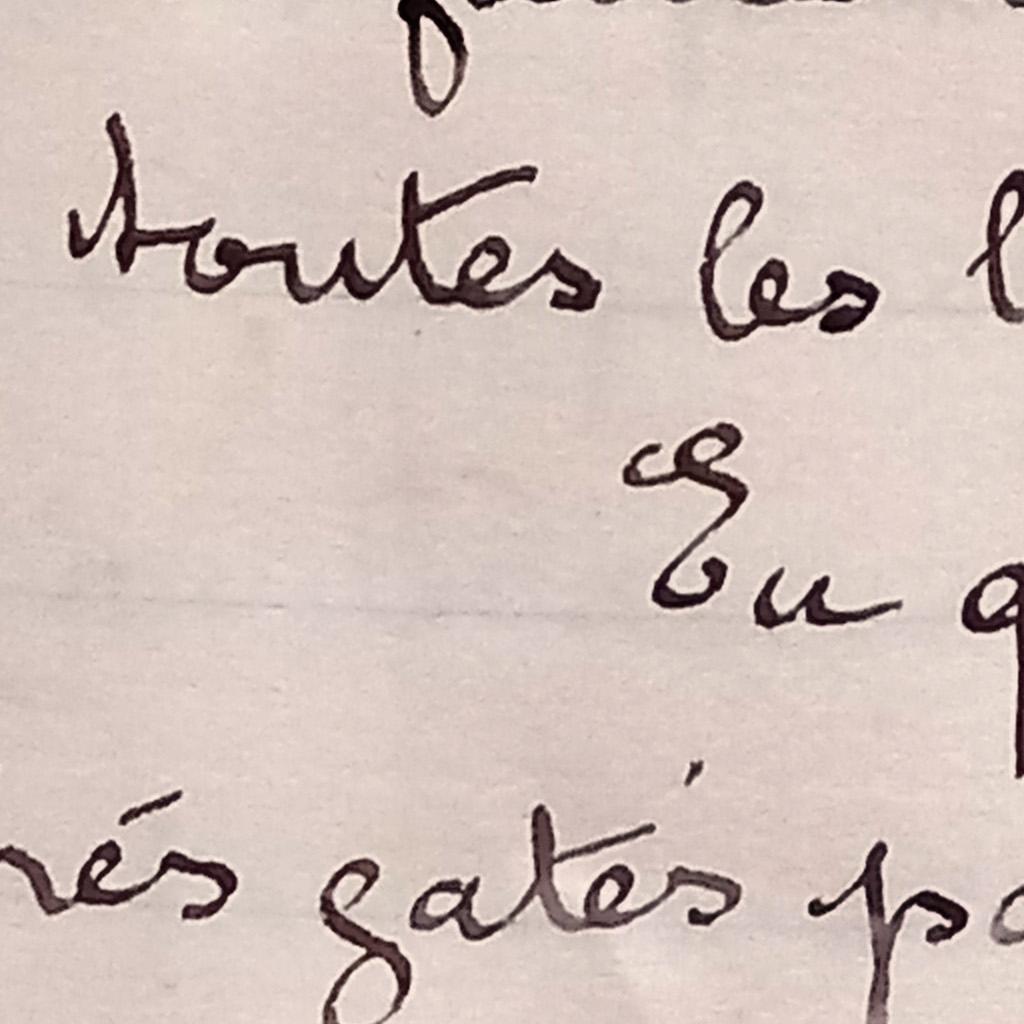 toutes les l
En q
rés gatés pa